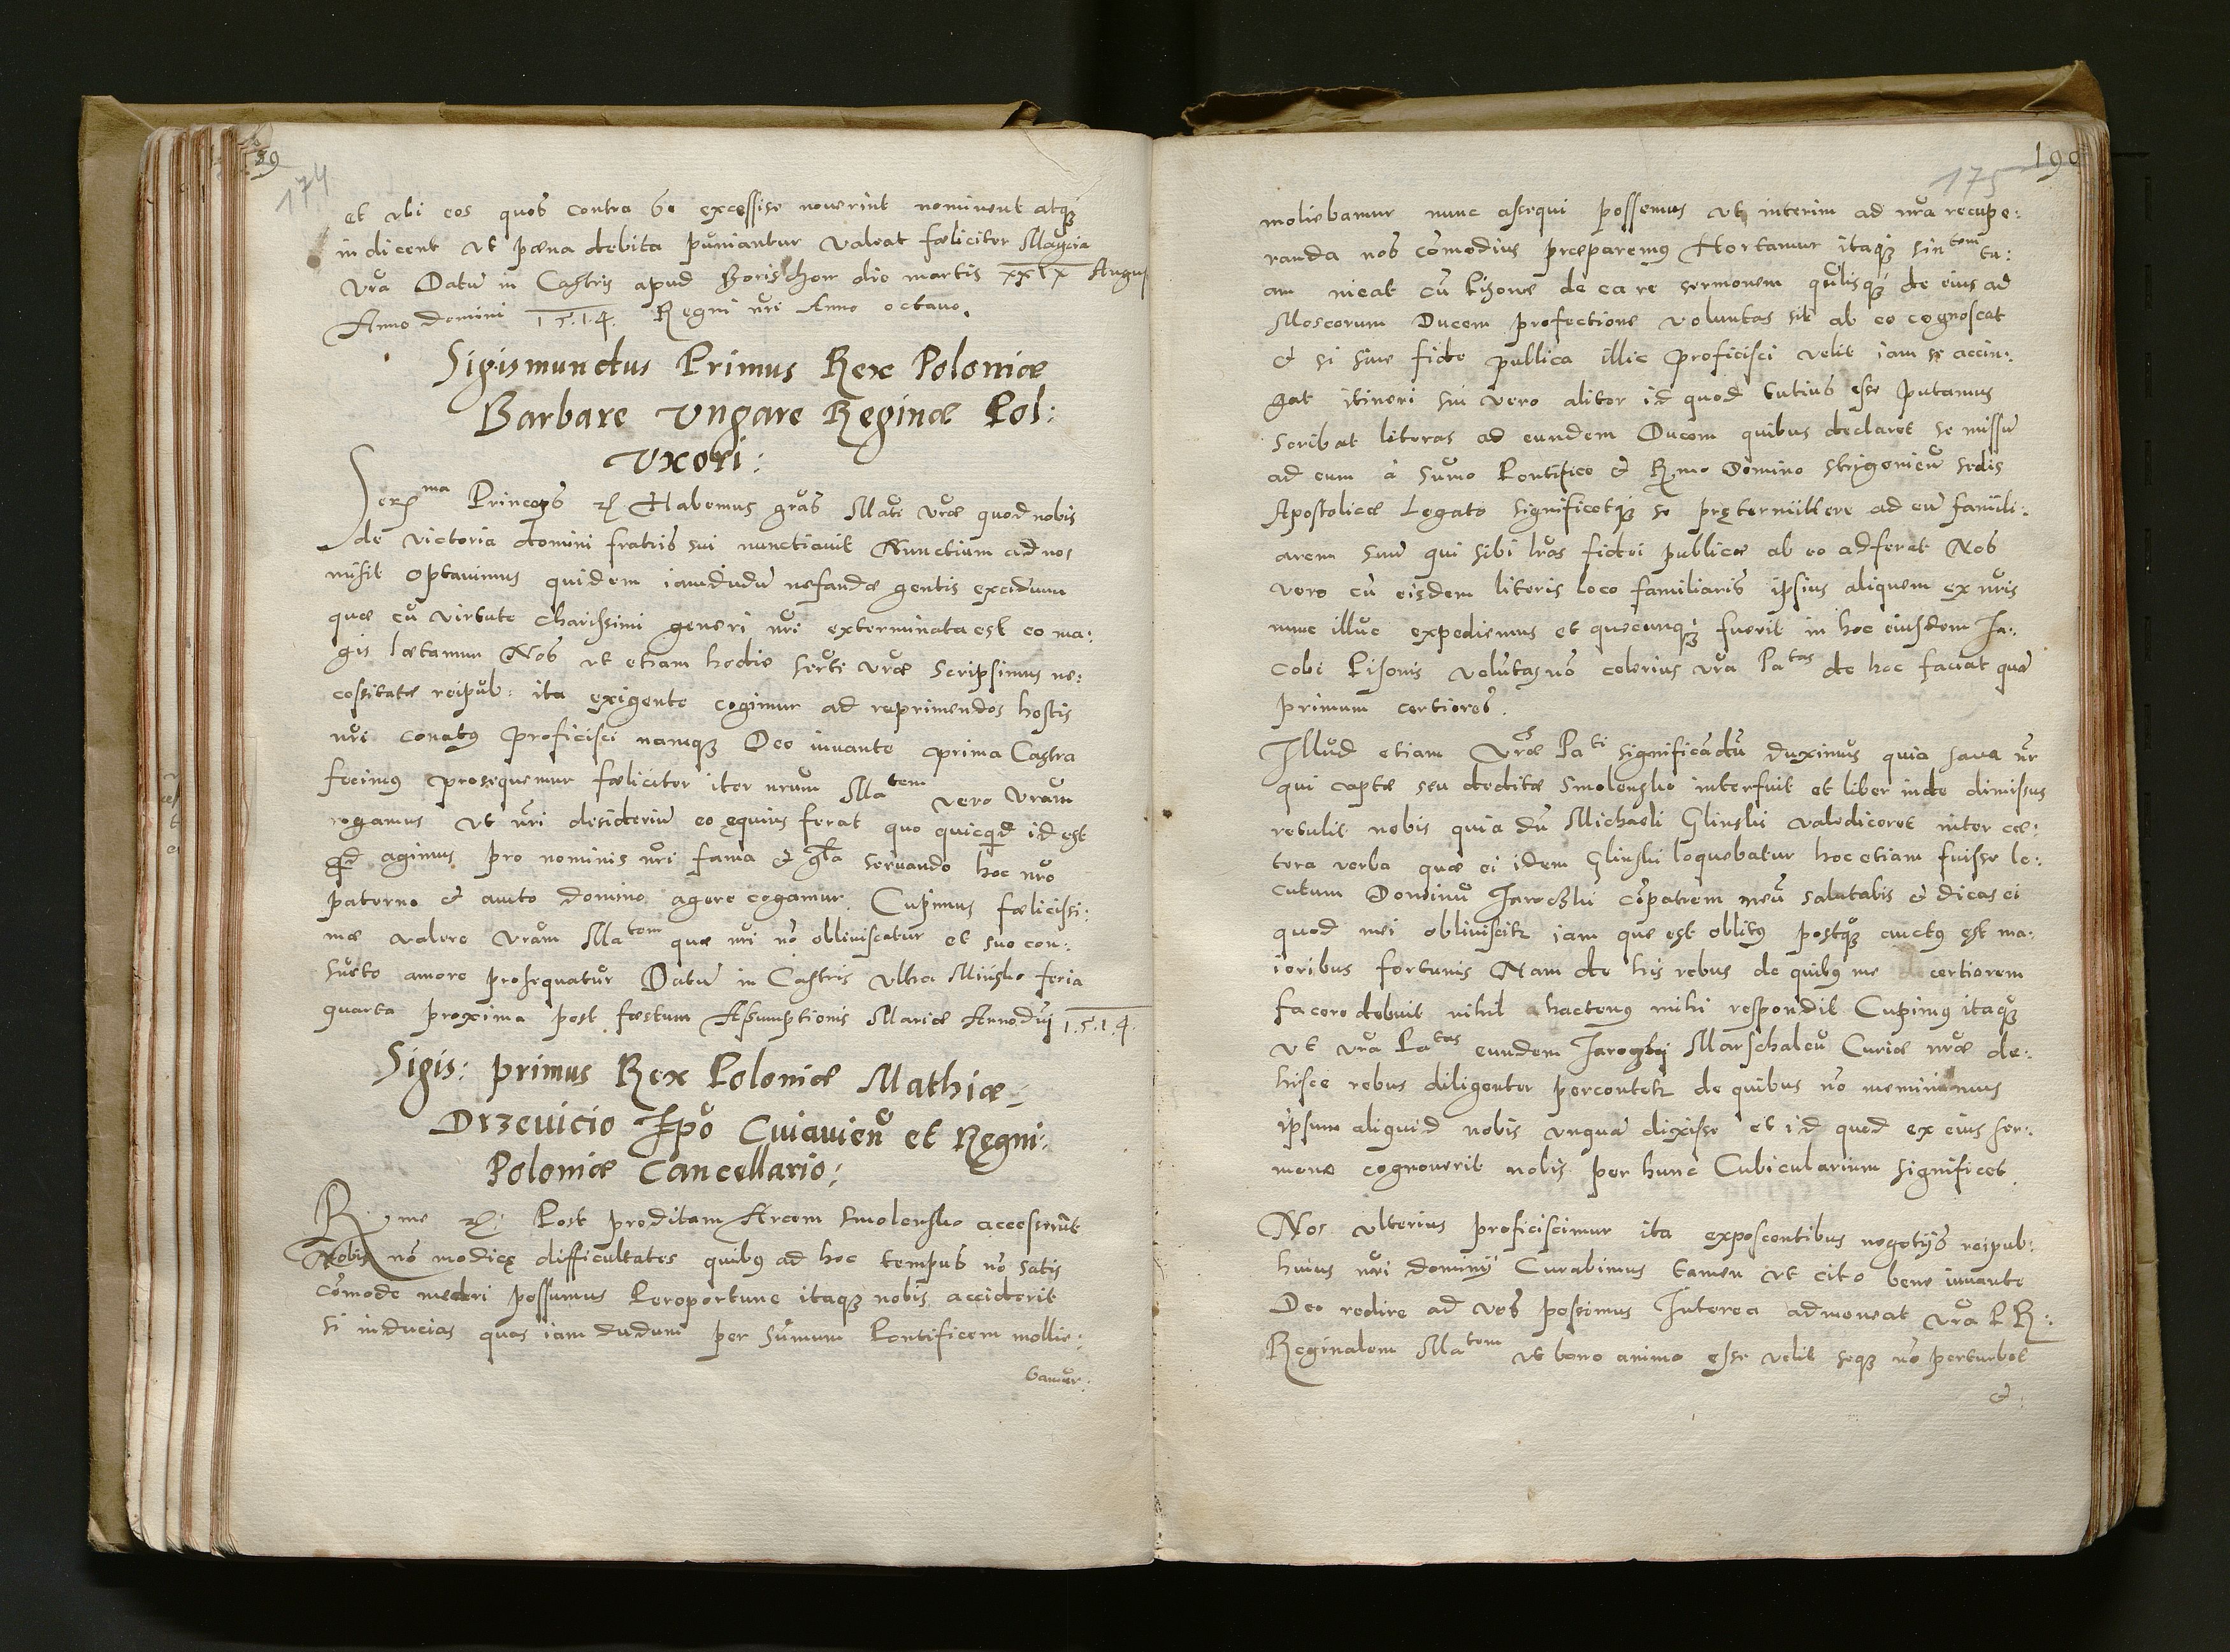 89
174
et vbi eos quos contra se excessise nouerint nominent atq3
indicent vt pæna debita puniantur Valeat fæliciter Magcia
vra Datu in Castris apud Borischow die martis xxix Augu
Anno domini 1514. Regni nri Anno octauo.
Sigismundus Primus Rex Poloniæ
Barbare Vngare Reginæ Pol:
Vxori:
Ser ma Princeps Habemus gras Mati vræ quod nobis
de victoria domini fratris sui nunctiauit Nunctium ad nos
misit Optauimus quidem iamdudu nefandæ gentis excidium
quæ cu virtute charissimi generi nri exterminata est eo ma:
gis lætamur Nos vt etiam hodie Serti vræ Scripsimus ne:
cessitate reipub: ita exigente cogimur ad reprimendos hostis
nri conatus proficisci namq3 Deo iuuante prima Castra
fecimus prosequemur fæliciter iter nrum Ma tem vero Vram
rogamus vt nri desideriu eo equius ferat quo quicqd id est
qd agimus pro nominis nri fama & gla seruando hoc nro
paterno & auito domino agere cogamur. Cupimus fælicissi:
me valere vram Ma tem quæ nri no obliuiscatur et suo con:
sueto amore prosequatur Datu in Castris vltra Minsko feria
quarta proxima post fæstum Assumptionis Mariæ Anno dni 1514.
Sigis: primus Rex Poloniæ Mathiæ
Drzeuicio Ipo Cuiauien et Regni:
Poloniæ Cancellario:
R me Post proditam Arcem Smolensko accesserut
Nobis no modice difficultates quibus ad hoc tempus no satis
comode mederi possumus Peroportune itaq3 nobis acciderit
si inducias quas iam dudum per Sumum Pontificem mollie:
bamur:
190
175
moliebamur nunc assequi possemus vt interim ad nra recupe:
randa nos comodius præparemus Hortamur itaq3 Sin tem tu:
am ineat cu Pisone de ea re sermonem qualisq3 de eius ad
Moscorum Ducem profectione voluntas sit ab eo cognoscat
& si sine fide publica illic proficisci velit iam se accin:
gat itineri sin vero aliter id quod tutius esse putamus
scribat literas ad eundem Ducem quibus declaret se missu
ad eum à Sumo Pontifice & R mo Domino Strigonien Sedis
Apostolicæ Legato Significetq3 se prętermittere ad eu famili:
arem suu qui sibi lras fidei publicæ ab eo adferat Nos
vero cu eisdem literis loco familiaris ipsius aliquem ex nris
nunc illuc expediemus et quæcunq3 fuerit in hoc eiusdem Ia:
cobi Pisonis volutas no celerius vra Pa tas de hoc faciat qua
primum certiores.
Illud etiam Vræ Pa ti significadu duximus quia sava nr
qui captæ seu deditæ Smolensko interfuit et liber inde dimissus
retulit nobis quia du Michaeli Glinski valediceret inter cæ:
tera verba quæ ei idem Glinski loquebatur hoc etiam fuisse lo:
cutum Dominu Iaroczki copatrem meu salutabis & dicas ei
quod mei obliuiscitr iam quæ est oblitus postq3 auctus est ma:
ioribus fortunis Nam de his rebus de quibus me certiorem
facere debuit nihil hactenus mihi respondit Cupimus itaq3
vt vra Pa tas eundem Iaroczky Marschalcu Curiæ nræ de:
hisce rebus diligenter percontetr de quibus no meminimus
ipsum aliquid nobis vnqua dixisse et id quod ex eius ser:
mone cognouerit nobis per hunc Cubicularium significet.
Nos vlterius proficiscimur ita exposcentibus negotijs reipub:
huius nri dominij Curabimus tamen vt cito bene iuuante
Deo redire ad vos possimus Interea admoneat vra P R:
Reginalem Ma tem vt bono animo esse velit seq3 no perturbet
&: